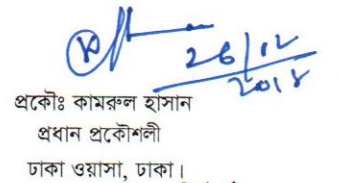 26/12
2018
প্রকৌঃ কামরুল হাসান
প্রধান প্রকৌশলী
ঢাকা ওয়াসা, ঢাকা।